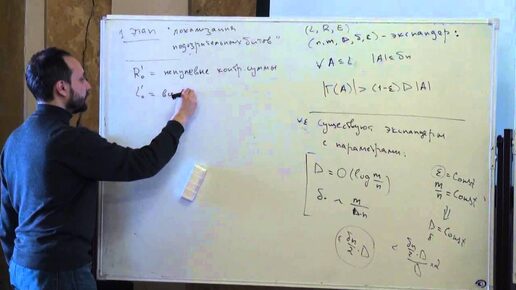 1 этап "локализация
подозрительных битов"
R₀' = ненулевые контр. суммы
L₀' =
(L, R, E)
(n, m, D, δ, ε) - экспандер:
∀A⊆L |A|≤δn
|Γ(A)| > (1-ε) D |A|
∀ε существуют экспандеры
с параметрами.
D = O(log m/n)
δ ~ m/Dn
ε = const
m/n = const
⇓
D = const
δ
&lt; δn/2 · D